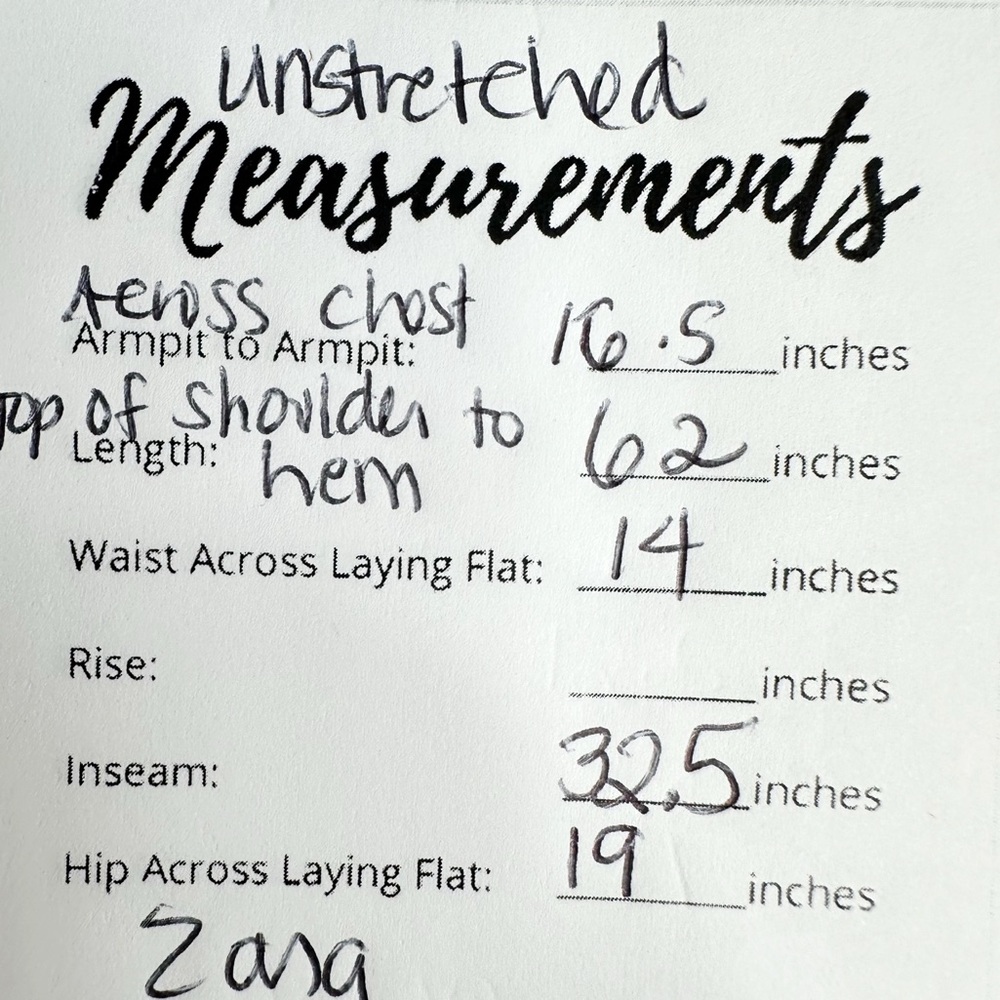 Unstretched
Measurements
Across chest
Armpit to Armpit: 16.5 inches
Top of shoulder to
Length: hem 62 inches
Waist Across Laying Flat: 14 inches
Rise: inches
Inseam: 32.5 inches
Hip Across Laying Flat: 19 inches
Zara